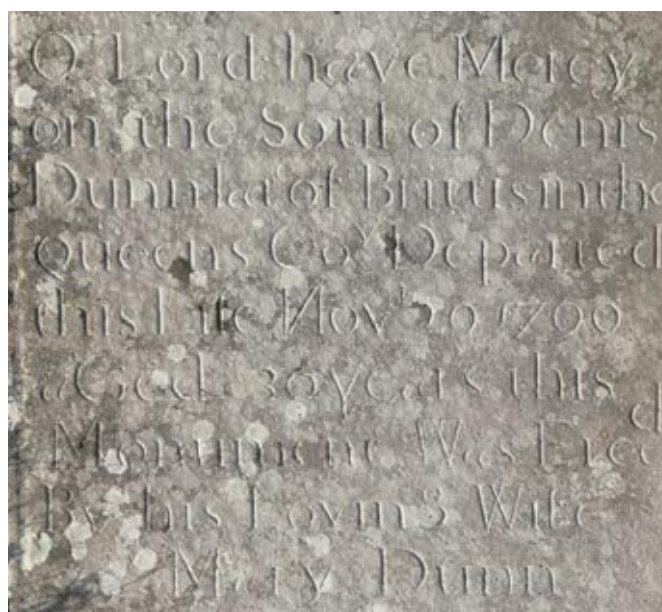 O Lord have Mercy
on the Soul of Denis
Dunn of Brittis in the
Queens Coy Departed
this Life Novbr 20 1799
aGed 30 years this
Monument Was Erec d
By his Loving Wife
Mary Dunn